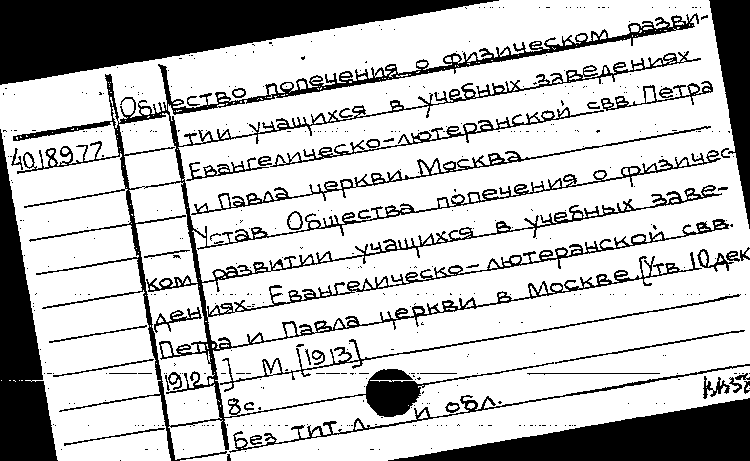 Общество попечения о физическом разви-
тии учащихся в учебных заведениях
40.189.77
Евангелическо-лютеранской свв. Петра
и Павла церкви. Москва.
Устав Общества попечения о физичес-
ком развитии учащихся в учебных заве-
дениях Евангелическо-лютеранской свв.
Петра и Павла церкви в Москве [Утв. 10 дек
1912 г.] М., [1913]
8 с.
Без тит. л. и обл.